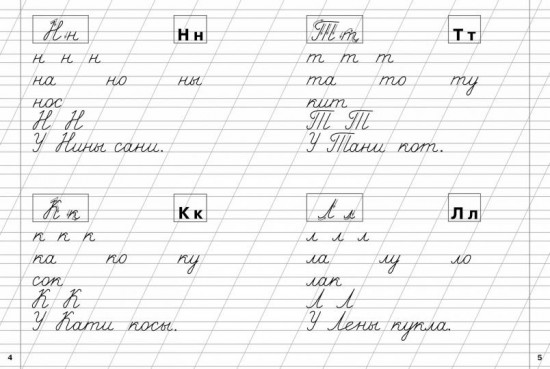 Н н Н н
н н н
на но ны
нос
Н Н
У Нины сани.
К к К к
к к к
ка ко ку
сок
К К
У Кати косы.
4
Т т Т т
т т т
та то ту
кит
Т Т
У Тани кот.
Л л Л л
л л л
ла лу ло
лак
Л Л
У Лены кукла.
5